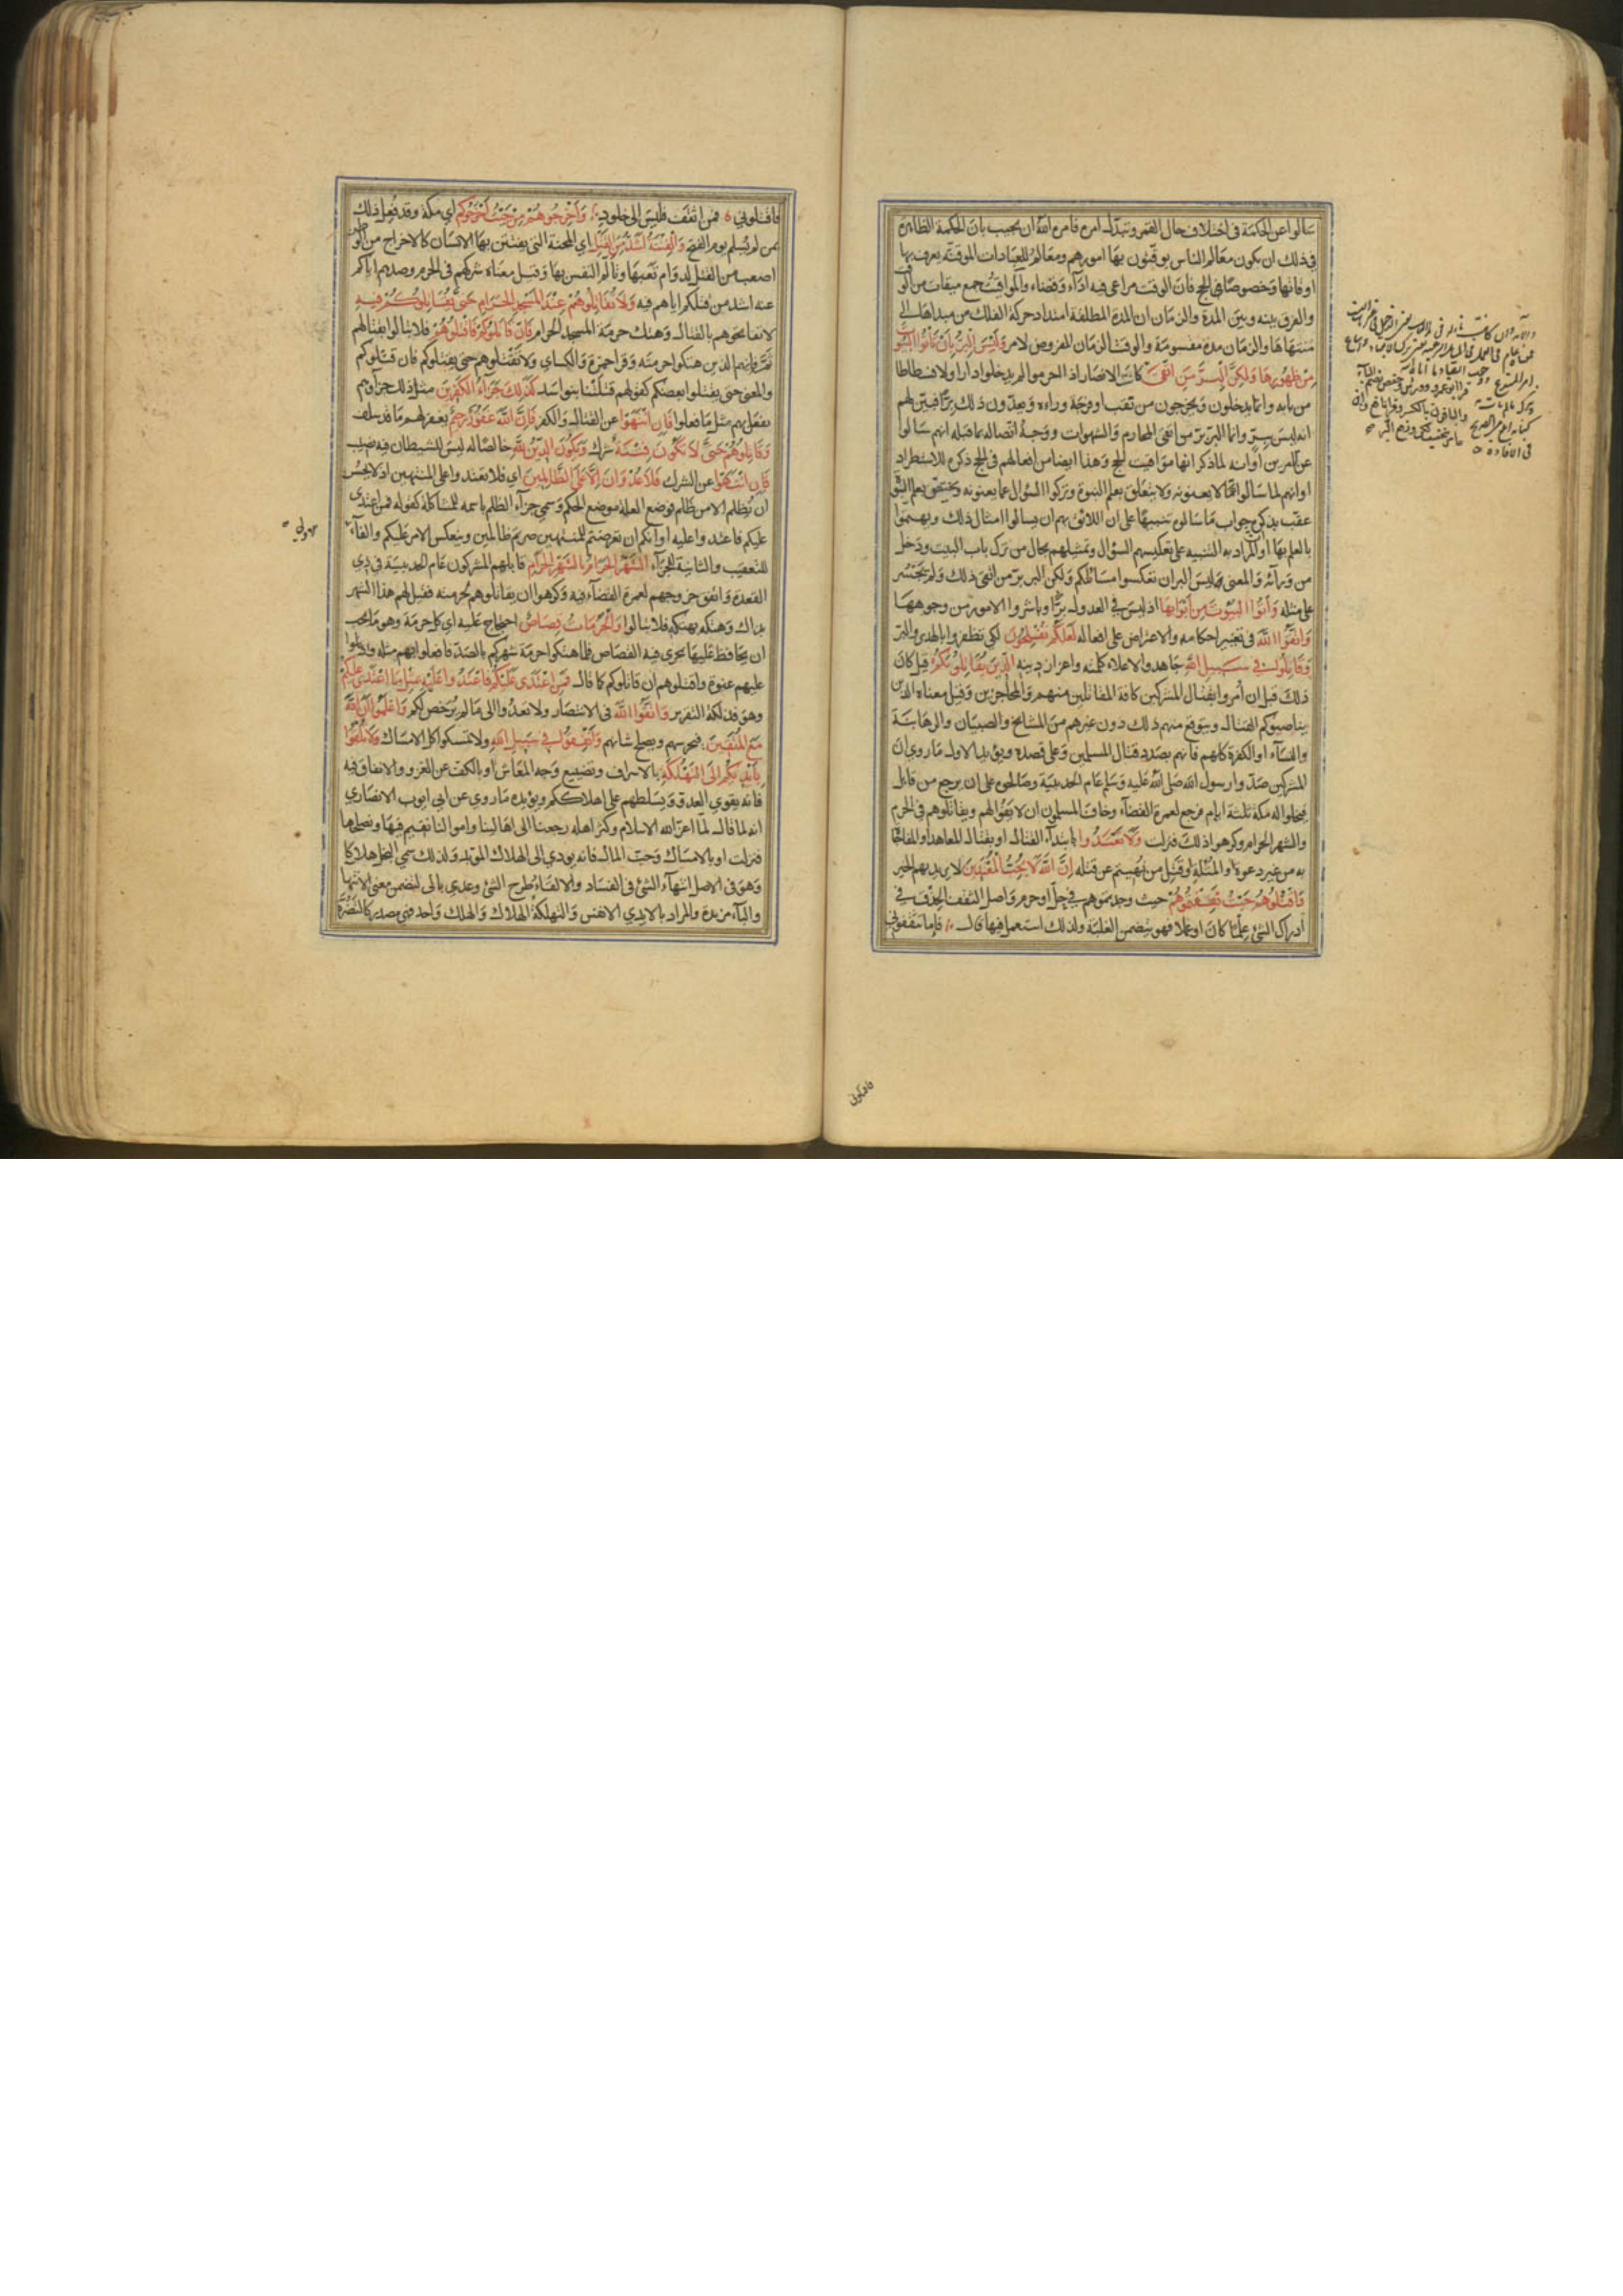 سالوا عن الحكمة فى اختلاف حال القمر وتبدّل امره فامره الله ان يجيب بان الحكمة الظاهرة
فى ذلك ان يكون معالم للناس يوقّتون بها امورهم ومعالم للعبادات الموقتة يعرف بها
اوقاتها وخصوصا فى الحج فان الوقت مراعى فيه اداء وقضاء والمواقيت جمع ميقات من الوقت
والفرق بينه وبين المدة والزمان ان المدة المطلقة امتداد حركة الفلك من مبداها الى
منتهاها والزمان مدة مقسومة والوقت الزمان المفروض لامر وَلَيْسَ الْبِرُّ بِاَنْ تَاْتُوا الْبُيُوتَ
مِنْ ظُهُورِهَا وَلكِنَّ الْبِرَّ مَنِ اتَّقَى كانت الانصار اذا احرموا لم يدخلوا دارا ولا فسطاطا
من بابه وانما يدخلون ويخرجون من نقب او فرجة وراءه ويعدّون ذلك برّا فبيّن لهم
انه ليس ببرّ وانما البرّ برّ من اتقى المحارم والشهوات ووجه اتصاله بما قبله انهم سالوا
عن الامرين او انه لما ذكر انها مواقيت الحج وهذا ايضا من افعالهم فى الحج ذكره للاستطراد
او انهم لما سالوا عما لا يعنونه ولا يتعلق بعلم النبوة وتركوا السؤال عما يعنونه ويختص بعلم النبوة
عقّب بذكره جواب ما سالوه تنبيها على ان اللائق بهم ان يسالوا امثال ذلك ويهتموا
بالعلم بها او المراد به التنبيه على تعكيسهم السؤال وتمثيلهم بحال من ترك باب البيت ودخل
من ورائه والمعنى وليس البر ان تعكسوا مسائلكم ولكن البر برّ من اتقى ذلك ولم يجتسر
على مثله وَأْتُوا الْبُيُوتَ مِنْ اَبْوَابِهَا اذ ليس فى العدول برّ او باشروا الامور من وجوهها
وَاتَّقُوا اللهَ فى تغيير احكامه والاعتراض على افعاله لَعَلَّكُمْ تُفْلِحُونَ لكى تظفروا بالهدى والبر
وَقَاتِلُوا فى سَبِيلِ اللهِ جاهدوا لاعلاء كلمته واعزاز دينه الَّذِينَ يُقَاتِلُونَكُمْ قيل كان
ذلك قبل ان أمروا بقتال المشركين كافة المقاتلين منهم والمحاجزين وقيل معناه الذين
يناصبوكم القتال ويتوقع منهم ذلك دون غيرهم من المشايخ والصبيان والرهابنة
والنساء او الكفرة كلهم فانهم بصدد قتال المسلمين وعلى قصده ويؤيد الاول ما روى ان
المشركين صدّوا رسول الله صلى الله عليه وسلم عام الحديبية وصالحوه على ان يرجع من قابل
فيخلوا له مكة ثلثة ايام فرجع لعمرة القضاء وخاف المسلمون ان لا يفوا لهم ويقاتلوهم فى الحرم
والشهر الحرام وكرهوا ذلك فنزلت وَلَا تَعْتَدُوا بابتداء القتال او بقتال المعاهد او المفاجاة
به من غير دعوة او المثلة او قتل من نهيتم عن قتله اِنَّ اللهَ لَا يُحِبُّ الْمُعْتَدِينَ لا يريد بهم الخير
وَاقْتُلُوهُمْ حَيْثُ ثَقِفْتُمُوهُمْ حيث وجدتموهم فى حلّ او حرم واصل الثقف الحذق فى
ادراك الشئ علما كان او عملا فهو يتضمن الغلبة ولذلك استعمل فيها قال فاما تثقفونى
فاقتلونى
فاقتلونى فمن اثقف فليس الى خلود وَاَخْرِجُوهُمْ مِنْ حَيْثُ اَخْرَجُوكُمْ اى مكة وقد فعل ذلك
بمن لم يسلم يوم الفتح وَالْفِتْنَةُ اَشَدُّ مِنَ الْقَتْلِ اى المحنة التى يفتتن بها الانسان كالاخراج من الوطن
اصعب من القتل لدوام تعبها وتالم النفس بها وقيل معناه شركهم فى الحرم وصدهم اياكم
عنه اشد من قتلكم اياهم فيه وَلَا تُقَاتِلُوهُمْ عِنْدَ الْمَسْجِدِ الْحَرَامِ حَتَّى يُقَاتِلُوكُمْ فِيهِ
لا تفاتحوهم بالقتال وهتك حرمة المسجد الحرام فَاِنْ قَاتَلُوكُمْ فَاقْتُلُوهُمْ فلا تبالوا بقتالهم
ثَمّ فانهم الذين هتكوا حرمته وقرا حمزة والكساى ولا تقتلوهم حتى يقتلوكم فان قتلوكم
والمعنى حتى يقتلوا بعضكم كقولهم قتلتنا بنو اسد كَذلِكَ جَزَاءُ الْكَافِرِينَ مثل ذلك جزاؤهم
يفعل بهم مثل ما فعلوا فَاِنِ انْتَهَوْا عن القتال والكفر فَاِنَّ اللهَ غَفُورٌ رَحِيمٌ يغفر لهم ما قد سلف
وَقَاتِلُوهُمْ حَتَّى لَا تَكُونَ فِتْنَةٌ شرك وَيَكُونَ الدِّينُ لِلهِ خالصا له ليس للشيطان فيه نصيب
فَاِنِ انْتَهَوْا عن الشرك فَلَا عُدْوَانَ اِلَّا عَلَى الظَّالِمِينَ اى فلا تعتدوا على المنتهين اذ لا يحسن
ان يُظلم الا من ظلم فوضع العلة موضع الحكم وسمى جزاء الظلم باسمه للمشاكلة كقوله فمن اعتدى
عليكم فاعتدوا عليه او انكم ان تعرضتم للمنتهين صرتم ظالمين وينعكس الامر عليكم والفاء
للتعقيب والثانية للجزاء الشَّهْرُ الْحَرَامُ بِالشَّهْرِ الْحَرَامِ قاتلهم المشركون عام الحديبية فى ذى
القعدة واتفق خروجهم لعمرة القضاء فيه وكرهوا ان يقاتلوهم لحرمته فقيل لهم هذا الشهر
بذاك وهتكه بهتكه فلا تبالوا وَالْحُرُمَاتُ قِصَاصٌ احتجاج عليه اى كل حرمة وهو ما يجب
ان يحافظ عليها يجرى فيه القصاص فلما هتكوا حرمة شهركم بالصدّ فافعلوا بهم مثله وادخلوا
عليهم عنوة واقتلوهم ان قاتلوكم كما قال فَمَنِ اعْتَدَى عَلَيْكُمْ فَاعْتَدُوا عَلَيْهِ بِمِثْلِ مَا اعْتَدَى عَلَيْكُمْ
وهو فذلكة التقرير وَاتَّقُوا اللهَ فى الانتصار ولا تعتدوا الى ما لم يُرَخّص لكم وَاعْلَمُوا اَنَّ اللهَ
مَعَ الْمُتَّقِينَ فيحرسهم ويصلح شانهم وَاَنْفِقُوا فِى سَبِيلِ اللهِ ولا تمسكوا كل الامساك وَلَا تُلْقُوا
بِاَيْدِيكُمْ اِلَى التَّهْلُكَةِ بالاسراف وتضييع وجه المعاش او بالكف عن الغزو والانفاق فيه
فانه يقوى العدو ويسلطهم على اهلاككم ويؤيده ما روى عن ابى ايوب الانصارى
انه لما قال لما اعز الله الاسلام وكثر اهله رجعنا الى اهالينا واموالنا نقيم فيها ونصلحها
فنزلت او بالامساك وحب المال فانه يودى الى الهلاك المؤبد ولذلك سمى البخل هلاكا
وهو فى الاصل انتهاء الشئ فى الفساد والالقاء طرح الشئ وعدى بالى لتضمن معنى الانتهاء
والباء مزيدة والمراد بالايدى الانفس والتهلكة الهلاك والهلك واحد فهى مصدر كالتضرة